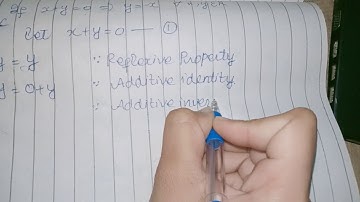 If x+y=0 ⇒ y=-x
Let x+y=0 — ①
y = y ∵ Reflexive Property
y = 0+y ∵ Additive identity
∵ Additive inver